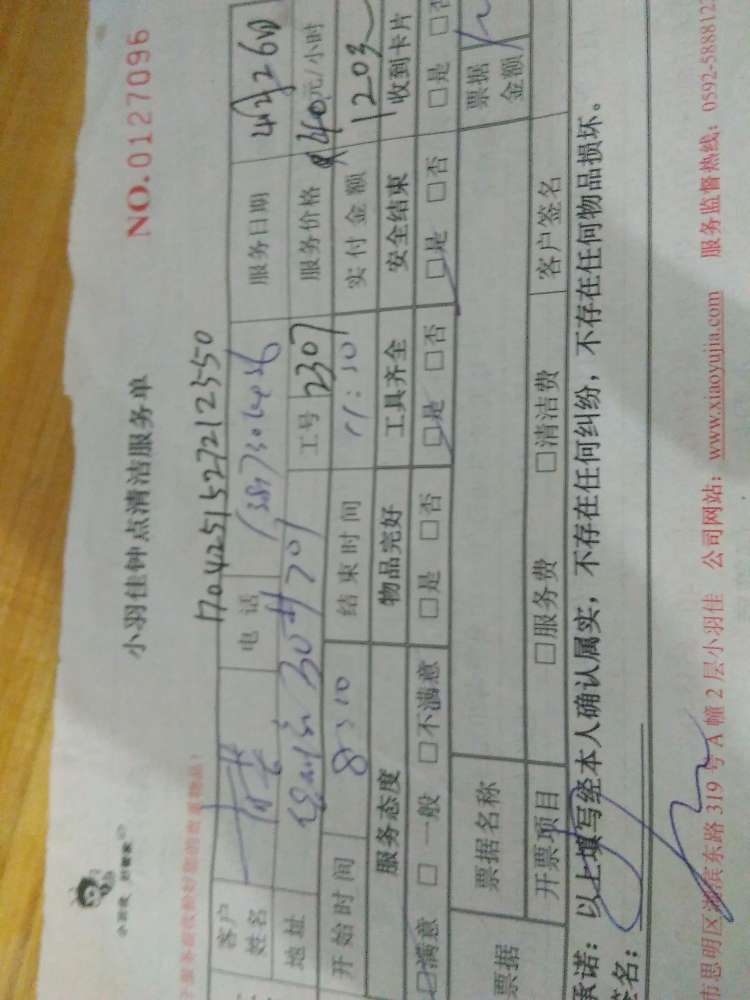 小羽佳 好管家
小羽佳钟点清洁服务单
NO.0127096
1704251527212550
客户姓名 电话 服务日期 4月26日
地址 30#701 工号 2307 服务价格 40元/小时
开始时间 8:10 结束时间 11:10 实付金额 120元
服务态度 物品完好 工具齐全 安全结束 收到卡片
☑满意 □一般 □不满意 □是 □否 □是 □否 □是 □否 □是
票据 票据名称 票据金额
开票项目 □服务费 □清洁费 客户签名
承诺：以上填写经本人确认属实，不存在任何纠纷，不存在任何物品损坏。
签名：
市思明区湖滨东路 319 号 A 幢 2 层小羽佳 公司网站：www.xiaoyujia.com 服务监督热线：0592-5888812